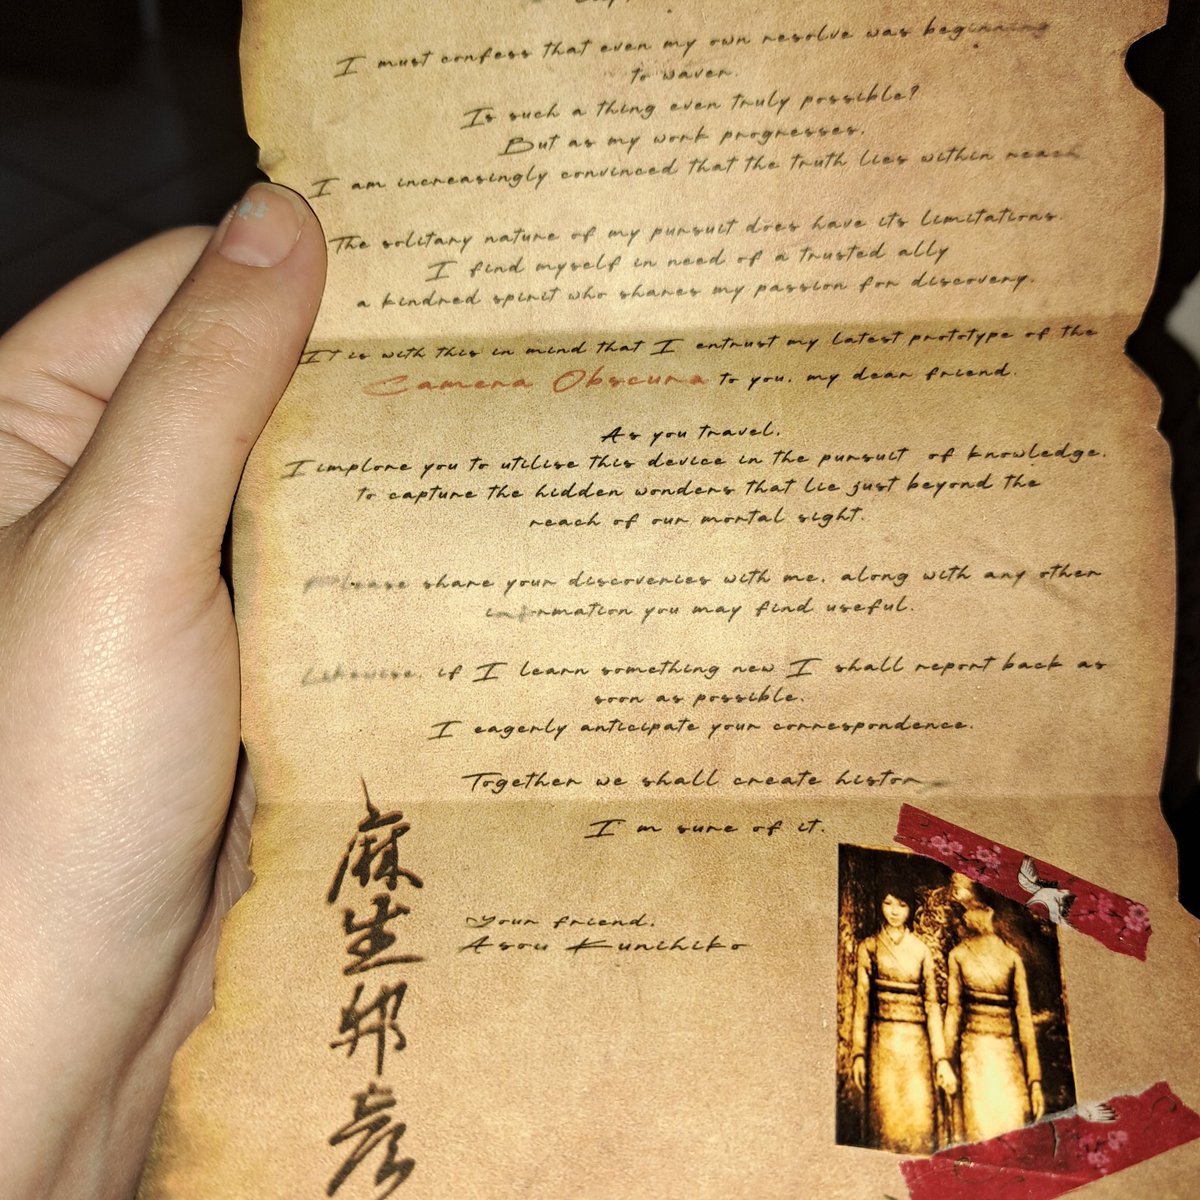 I must confess that even my own resolve was beginning
to waver.
Is such a thing even truly possible?
But as my work progresses,
I am increasingly convinced that the truth lies within reach
The solitary nature of my pursuit does have its limitations.
I find myself in need of a trusted ally
a kindred spirit who shares my passion for discovery.
It is with this in mind that I entrust my latest prototype of the
Camera Obscura to you, my dear friend.
As you travel,
I implore you to utilise this device in the pursuit of knowledge,
to capture the hidden wonders that lie just beyond the
reach of our mortal sight.
Please share your discoveries with me, along with any other
information you may find useful.
Likewise, if I learn something new I shall report back as
soon as possible.
I eagerly anticipate your correspondence.
Together we shall create histor
I'm sure of it.
Your friend,
Asou Kunihiko
麻生邦彦